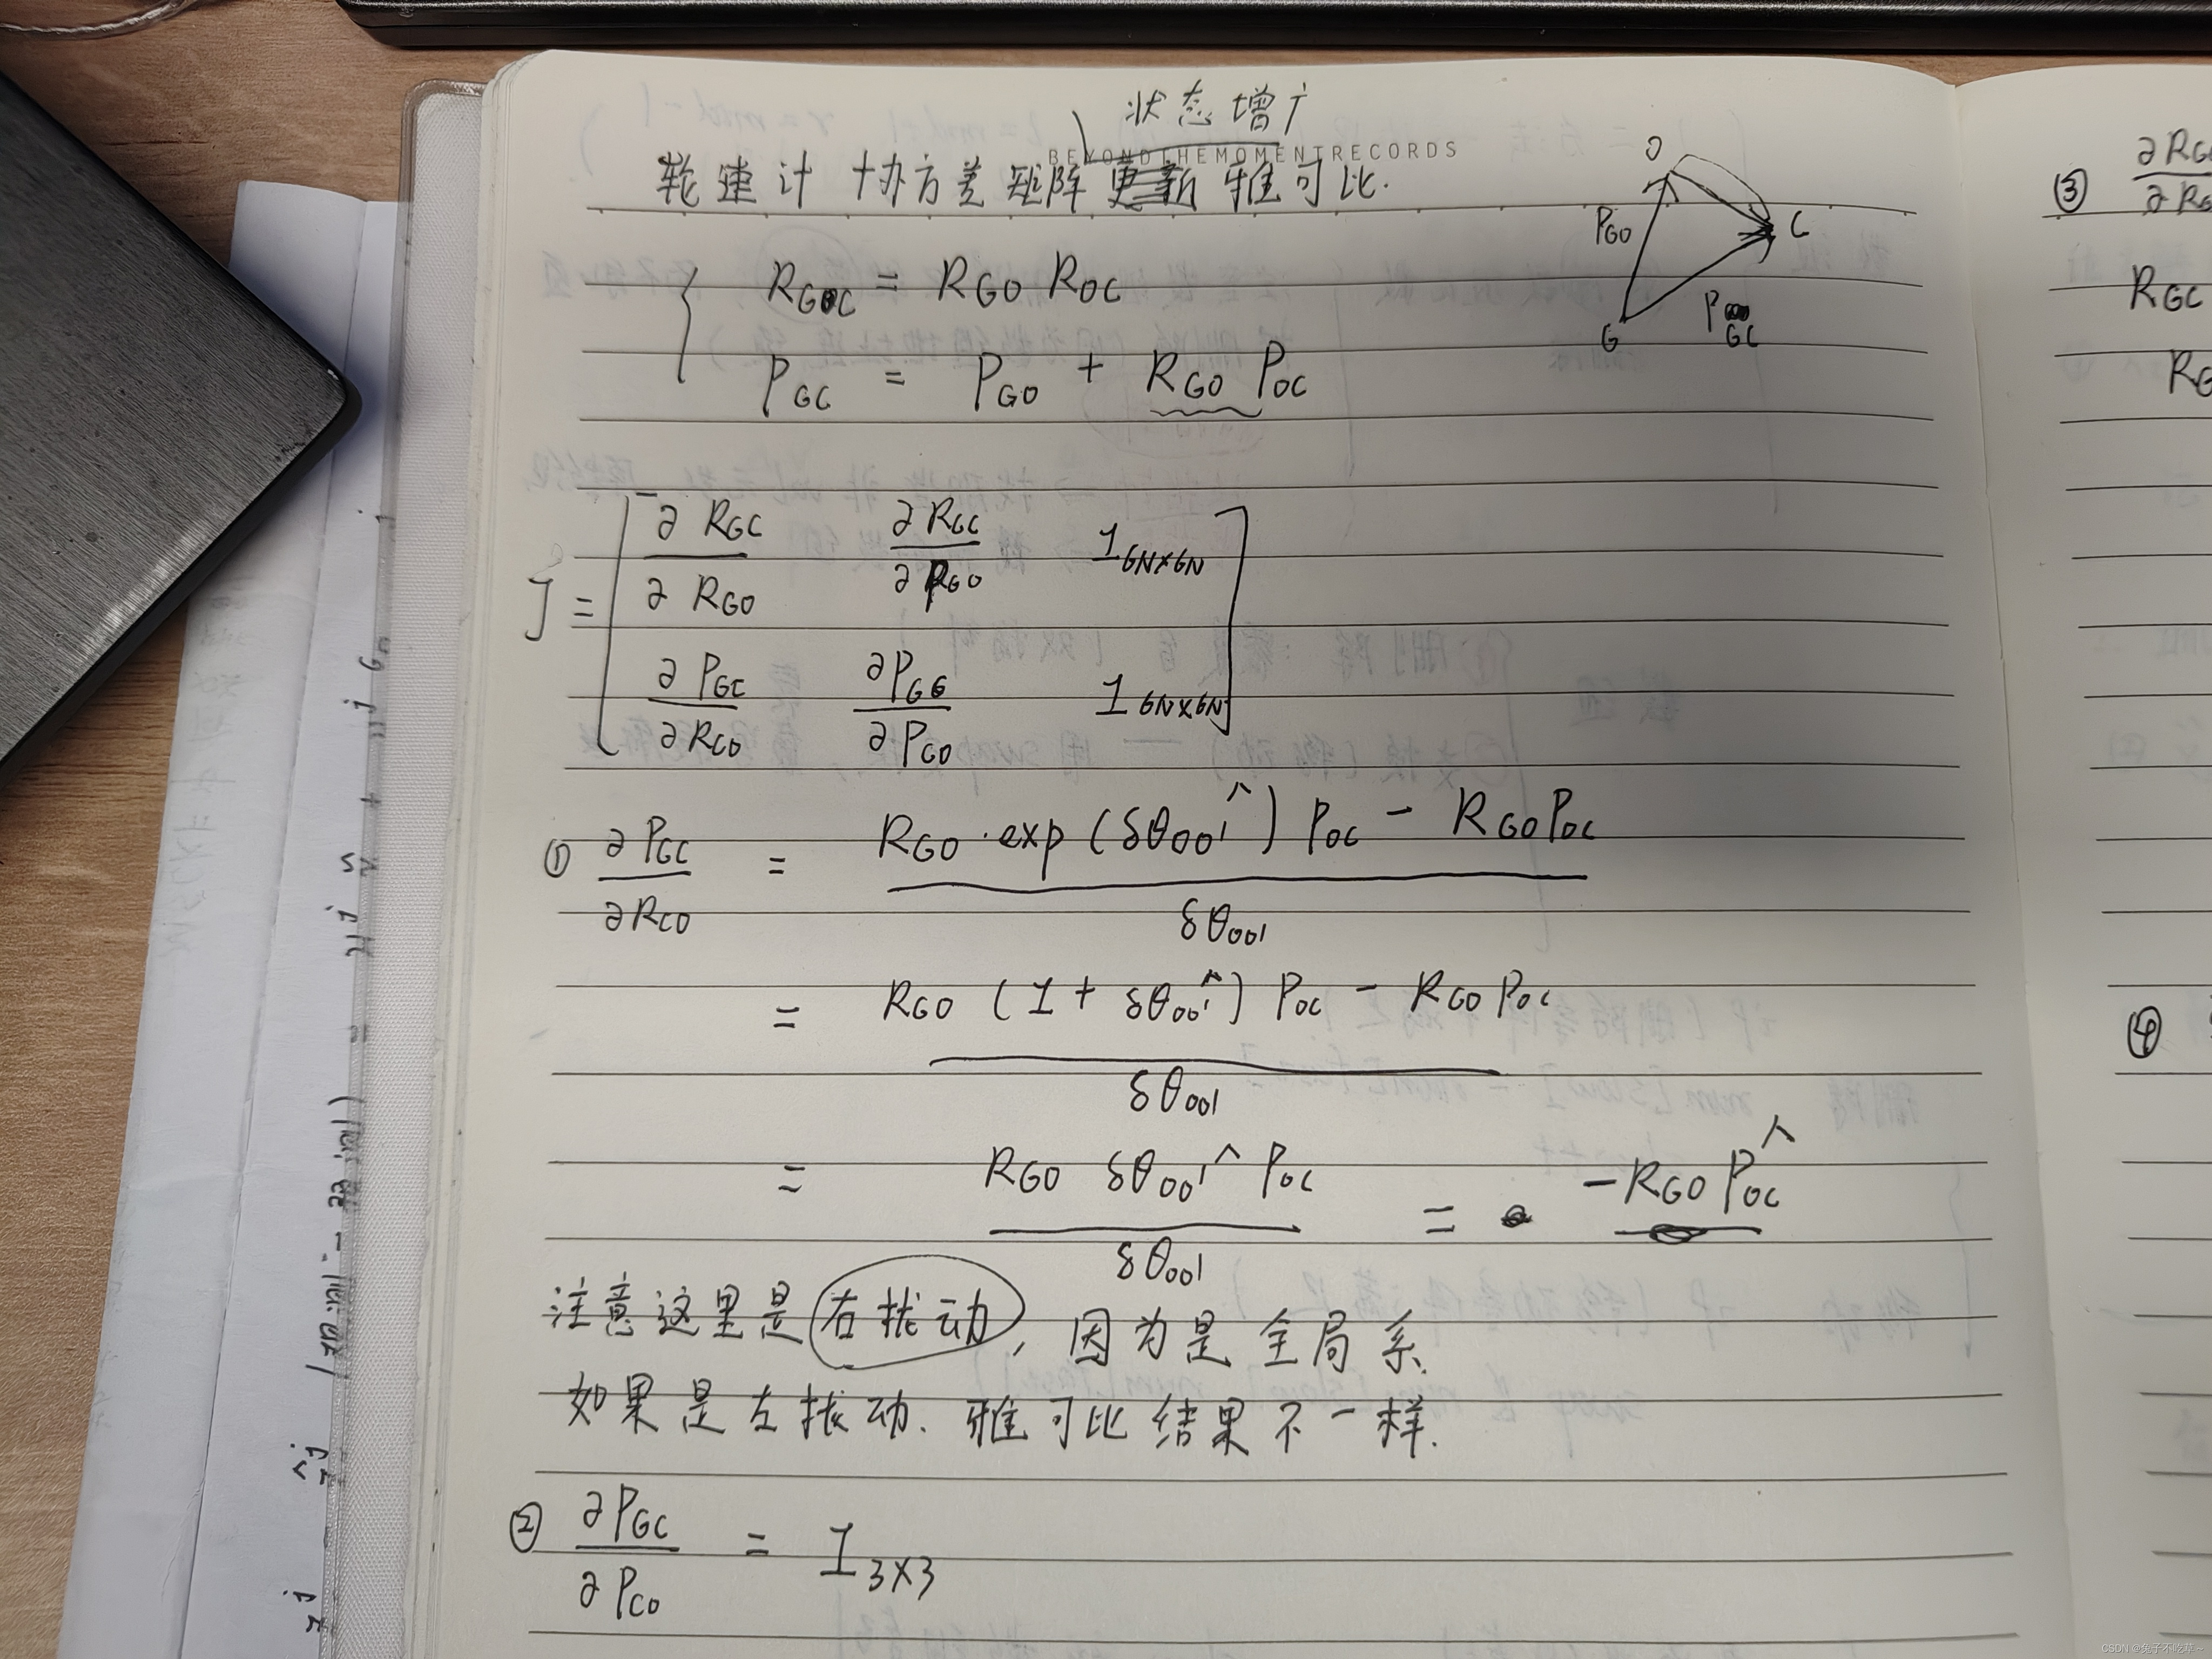 状态增广
BEYOND THE MOMENT RECORDS
轮速计 协方差矩阵 更新 雅可比.
O
P_GO
C
G
P_GC
R_GC = R_GO R_OC
P_GC = P_GO + R_GO P_OC
J = [ ∂R_GC/∂R_GO ∂R_GC/∂P_GO I_6N×6N
∂P_GC/∂R_CO ∂P_GG/∂P_CO I_6N×6N ]
① ∂P_GC/∂R_CO = (R_GO · exp(δθ_oo'^) P_OC - R_GO P_OC) / δθ_oo'
= (R_GO (I + δθ_oo'^) P_OC - R_GO P_OC) / δθ_oo'
= (R_GO δθ_oo'^ P_OC) / δθ_oo' = -R_GO P_OC^
注意这里是右扰动, 因为是全局系.
如果是左扰动. 雅可比结果不一样.
② ∂P_GC/∂P_CO = I_3×3
③
R_GC
④
CSDN @兔子不吃草~